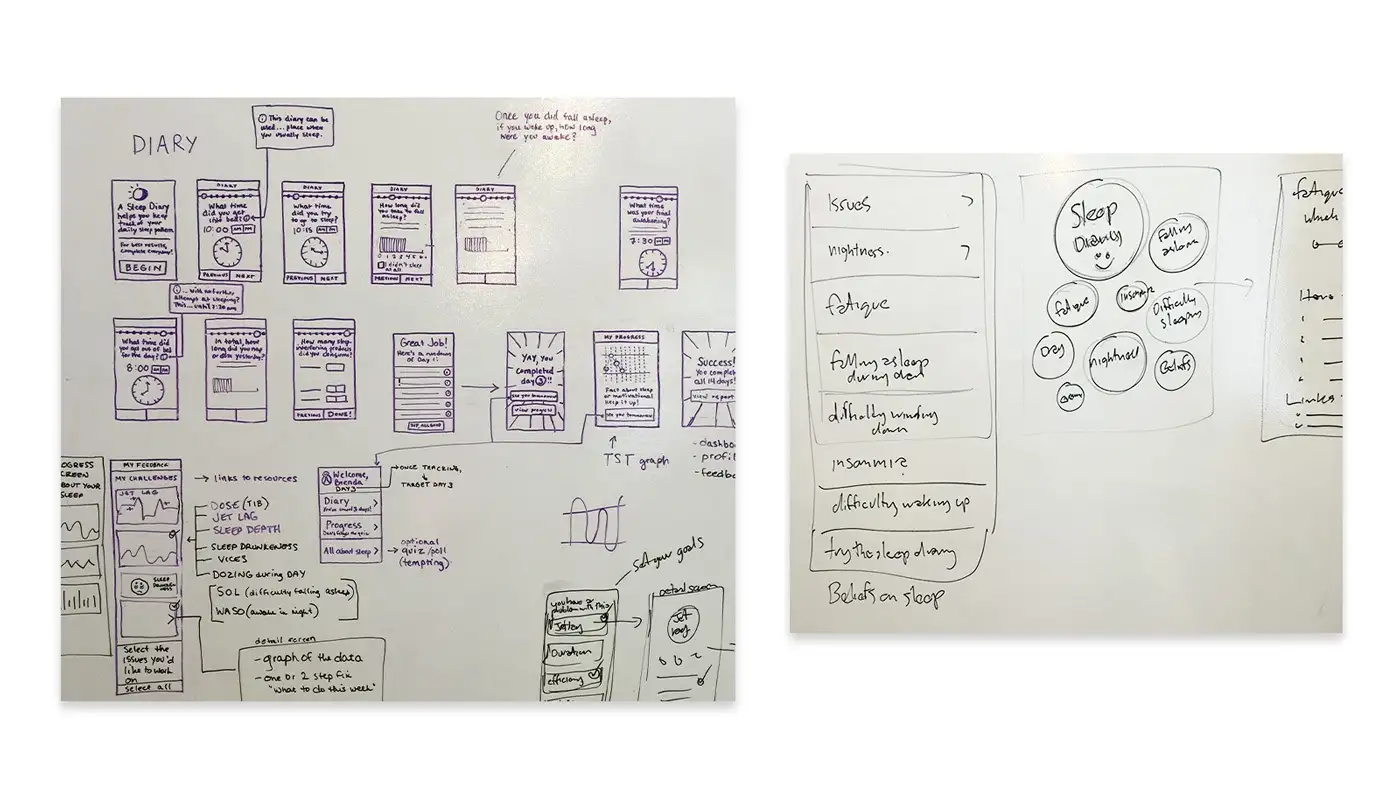 DIARY
ⓘ This diary can be
used... place when
you usually sleep.
Once you did fall asleep,
if you woke up, how long
were you awake?
A Sleep Diary
helps you keep
track of your
daily sleep pattern
For best results,
complete everyday!
BEGIN
DIARY
What time
did you get
into bed? ⓘ
10:00 AM PM
PREVIOUS NEXT
DIARY
What time
did you try
to go to sleep?
10:15 AM PM
PREVIOUS NEXT
DIARY
How long
did you take to fall
asleep?
0 1 2 3 4 5 6
I didn't sleep
at all
PREVIOUS NEXT
DIARY
What time
was your final
awakening?
7:30 AM PM
ⓘ ... with no further
attempt at sleeping?
This... until 7:20 am
What time did
you get out of bed
for the day? ⓘ
8:00 AM PM
In total, how
long did you nap
or doze yesterday?
How many sleep
interfering products
did you consume?
PREVIOUS DONE!
Great Job!
Here's a rundown
of Day 1:
YAY, you
completed
day 3!!
See you tomorrow
View progress
MY PROGRESS
Fact about sleep
or motivational
keep it up!
See you tomorrow
TST graph
Success!
You comple
all 14 days!
View report
- dashbo
- profil
- feedba
OGRESS
CREEN
BOUT YOUR
SLEEP
MY FEEDBACK
MY CHALLENGES
JET LAG
SLEEP
DRUNKEN-
NESS
Select the
issues you'd
like to work
on
Select all
→ links to resources
DOSE (TIB)
JET LAG
SLEEP DEPTH
SLEEP DRUNKENESS
VICES
DOZING during DAY
SOL (difficulty falling asleep)
WASO (awake in night)
Welcome,
Brenda
DAY 3
Diary
Progress
All about sleep
ONCE TRACKING,
TARGET DAY 3
optional
quiz/poll
(tempting)
detail screen
- graph of the data
- one or 2 step fix
"What to do this week"
Set your goals
you have a
problem with this
Jetlag
Duration
efficiency
Detail screen
Jet
Issues
nightness.
fatigue
falling asleep
during day
difficulty winding
down
insomnia
difficulty waking up
try the sleep diary
Beliefs on sleep
Sleep
Diary
falling
asleep
fatigue
insomnia
Difficulty
sleeping
Day
nightowl
Beliefs
fatigue
which
How
Links